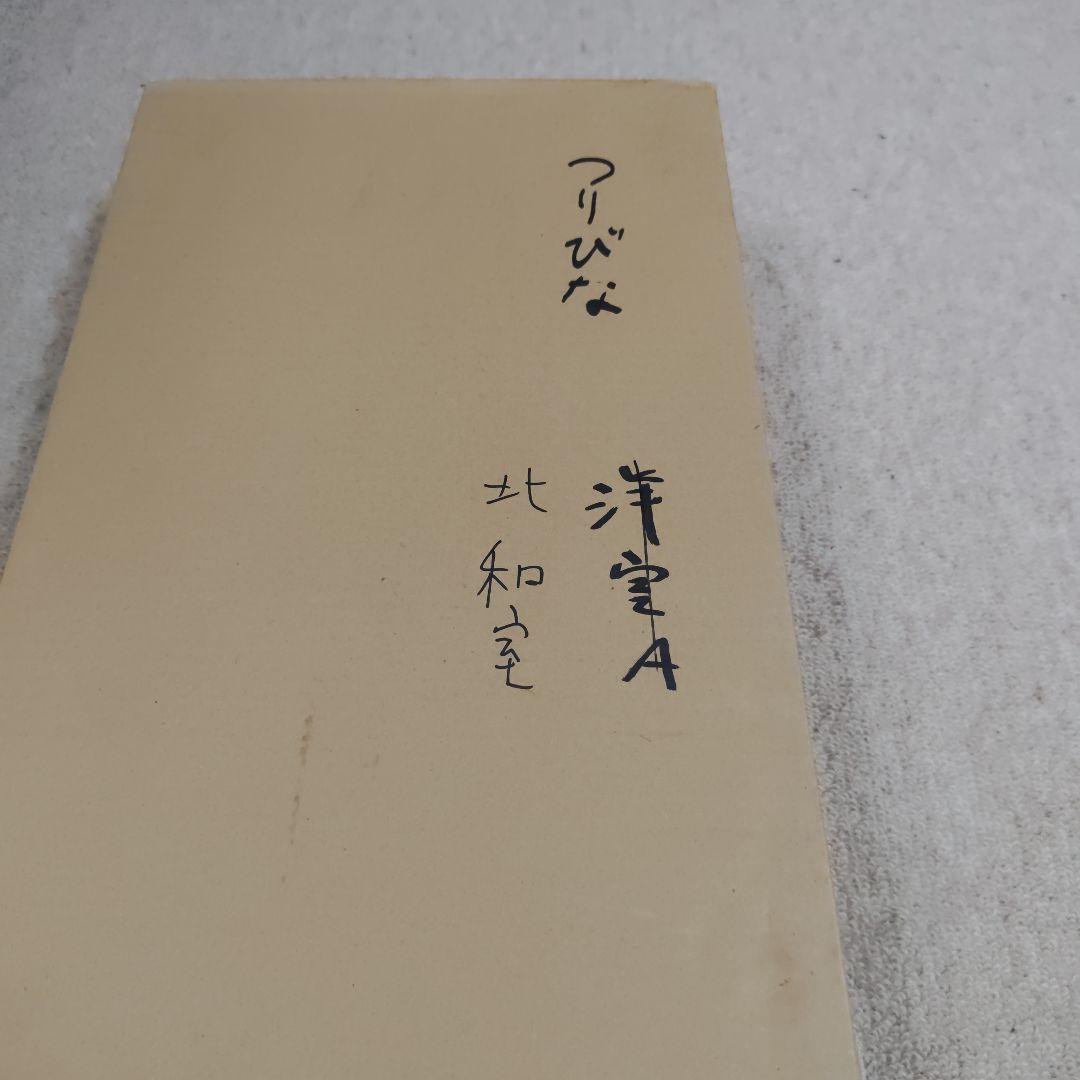 つりびな
洋室A
北和室